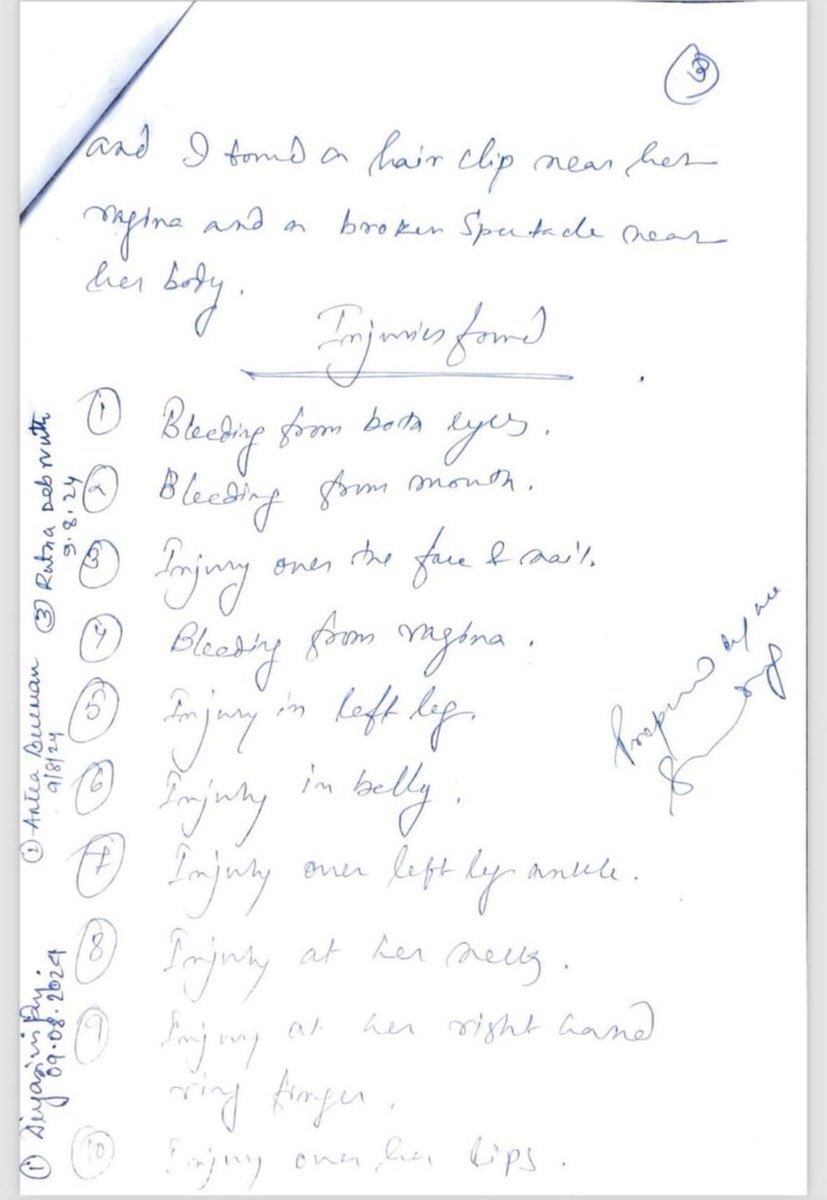 ③
and I found a hair clip near her
vagina and a broken Spectacle near
her body.
Injuries found
① Bleeding from both eyes.
② Bleeding from mouth.
③ Injury over the face & nail.
④ Bleeding from vagina.
⑤ Injury in left leg.
⑥ Injury in belly.
⑦ Injury over left leg ankle.
⑧ Injury at her neck.
⑨ Injury at her right hand
ring finger.
⑩ Injury over her lips.
Prepared by me
①
09.08.2024
②
9/8/24
③ Ratna Debnath
9.8.24